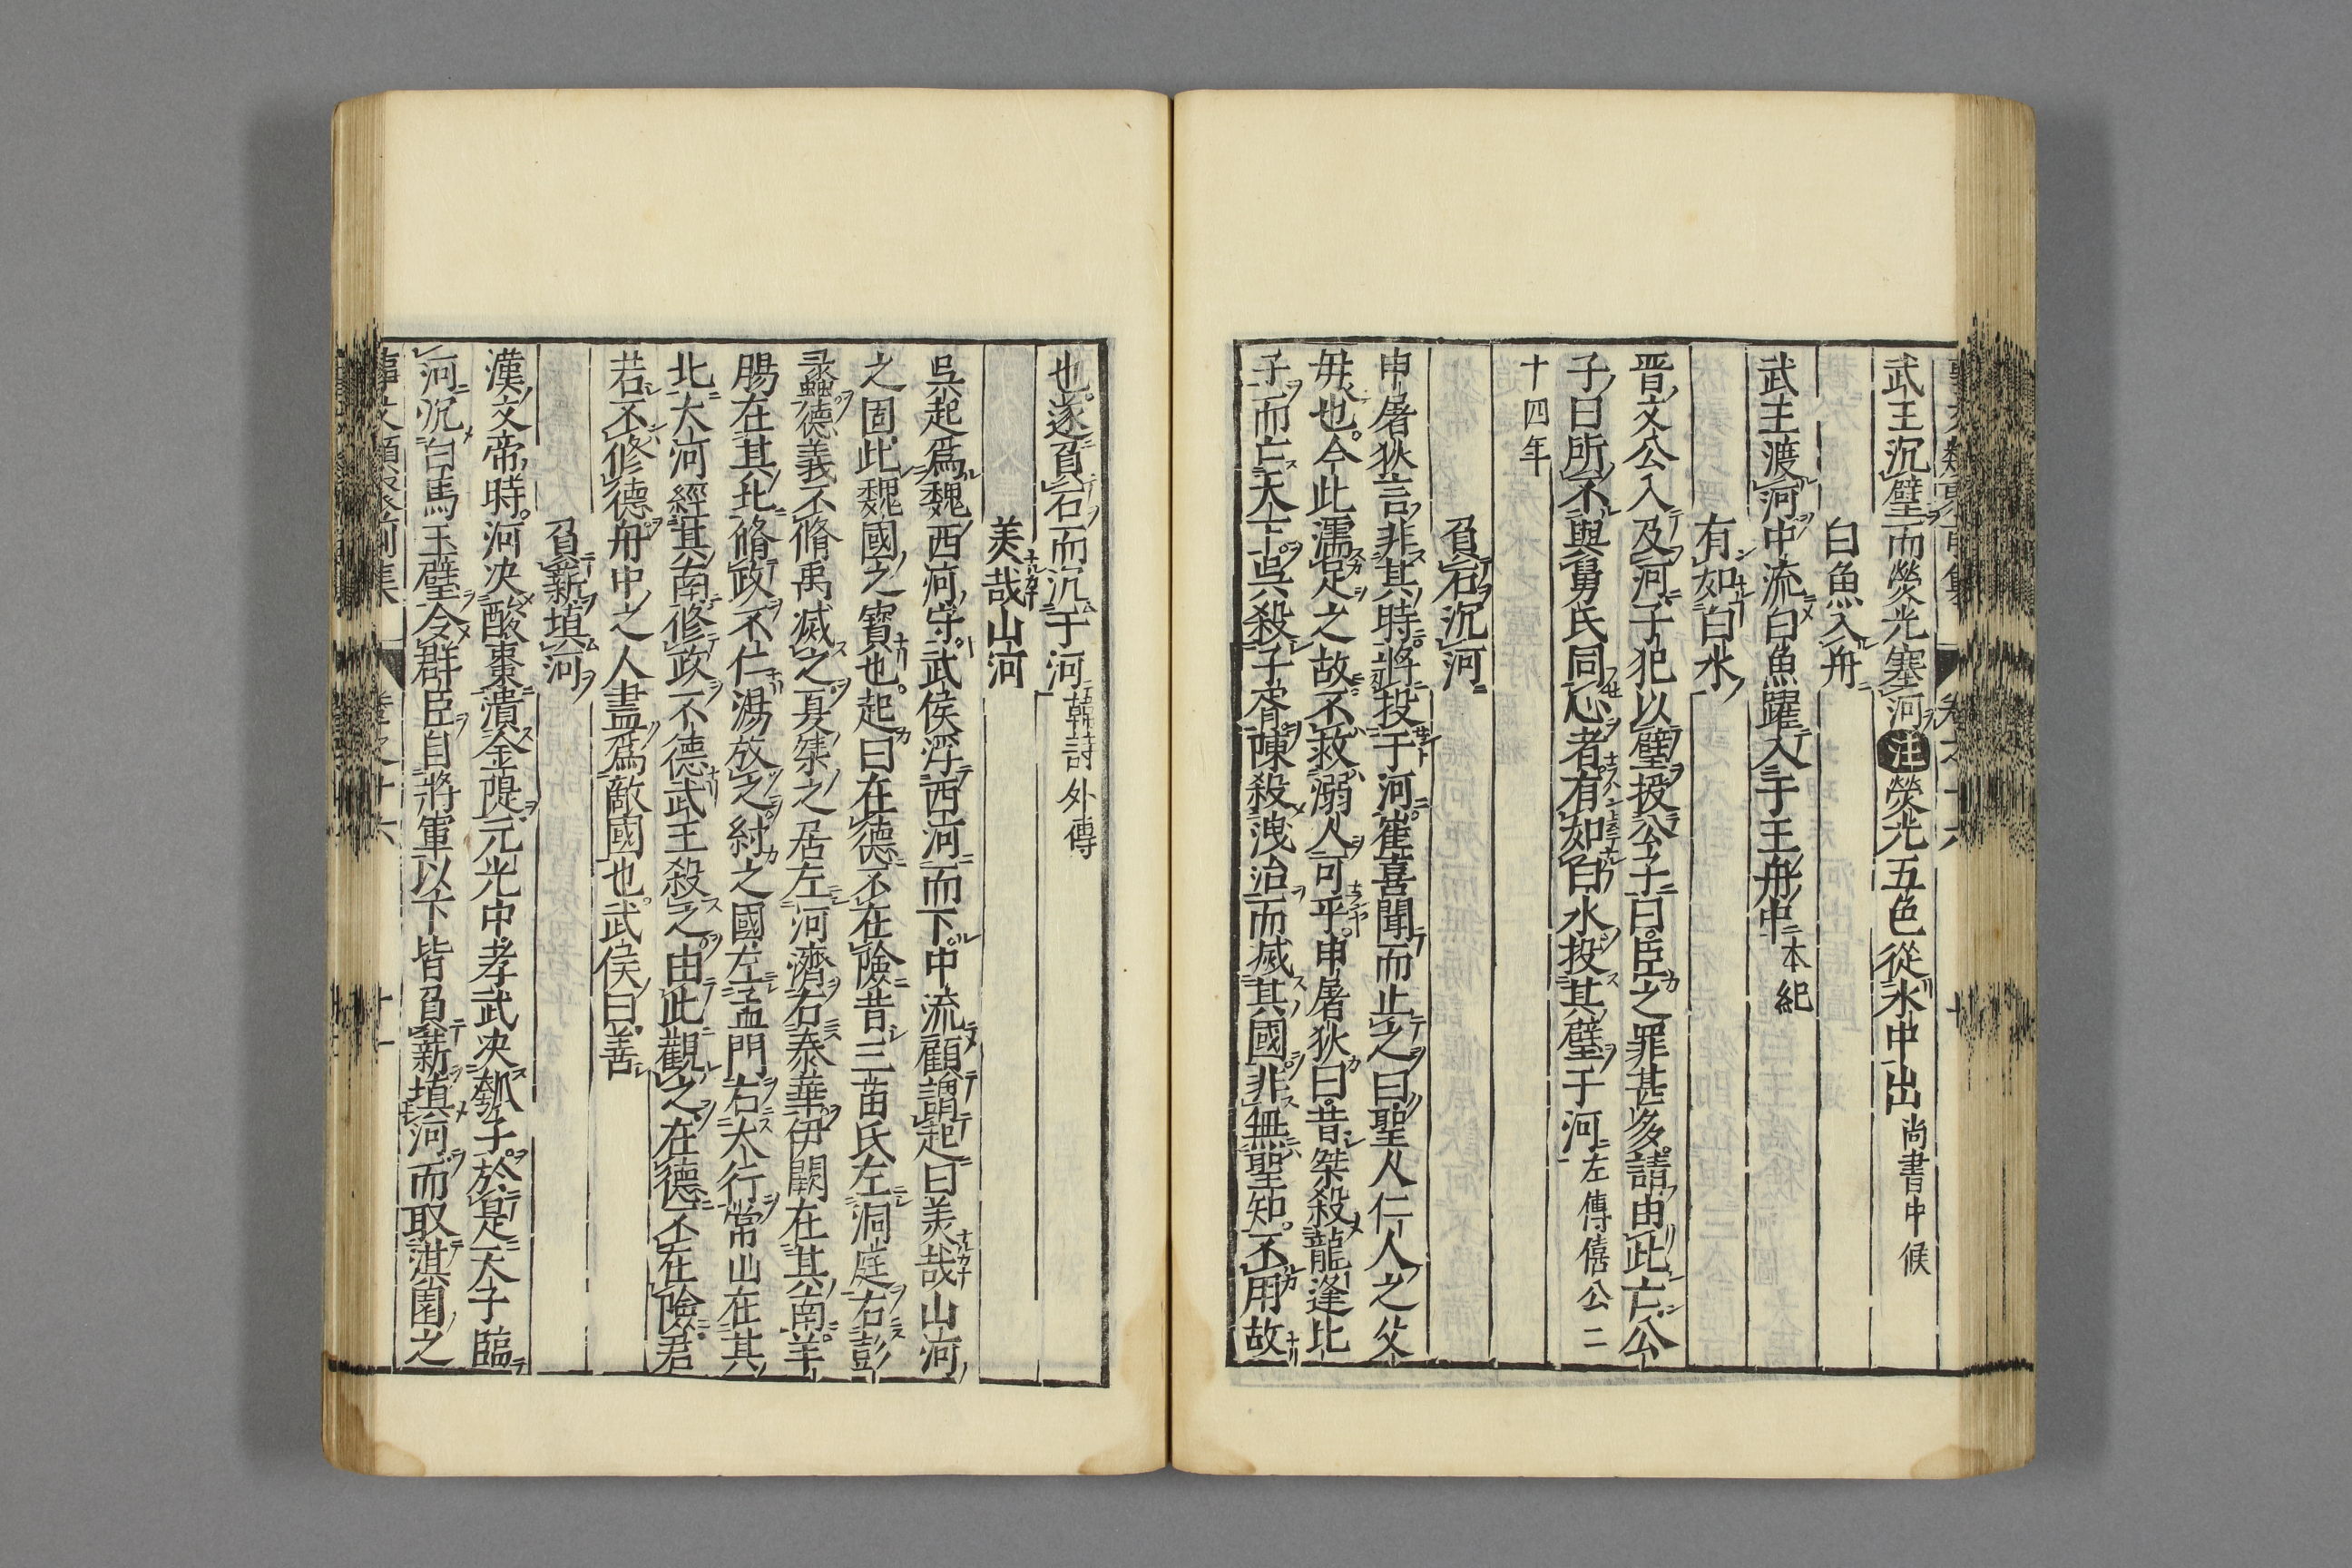 武王沉璧而熒光塞河注熒光五色從水中出尚書中候
白魚入舟
武王渡河中流白魚躍入于王舟中本紀
有如白水
晋文公入及河子犯以璧授公子曰臣之罪甚多請由此亡公
子曰所不與舅氏同心者有如白水投其璧于河左傳僖公二
十四年
負石沉河
申屠狄言非其時將投于河崔喜聞而止之曰聖人仁人之父
母也今此濡足之故不救溺人可乎申屠狄曰昔桀殺龍逢比
子而亡天下吳殺子胥陳殺洩冶而滅其國非無聖知不用故
也遂負石而沉于河韓詩外傳
美哉山河
吳起爲魏西河守武侯浮西河而下中流顧謂起曰美哉山河
之固此魏國之寶也起曰在德不在險昔三苗氏左洞庭右彭
蠡德義不脩禹滅之夏桀之居左河濟右泰華伊闕在其南羊
腸在其北脩政不仁湯放之紂之國左孟門右太行常山在其
北大河經其南修政不德武王殺之由此觀之在德不在險君
若不修德舟中之人盡爲敵國也武侯曰善
負薪填河
漢文帝時河决酸棗潰金隄元光中孝武决瓠子於是天子臨
河沉白馬玉璧令群臣自將軍以下皆負薪填河而取淇園之